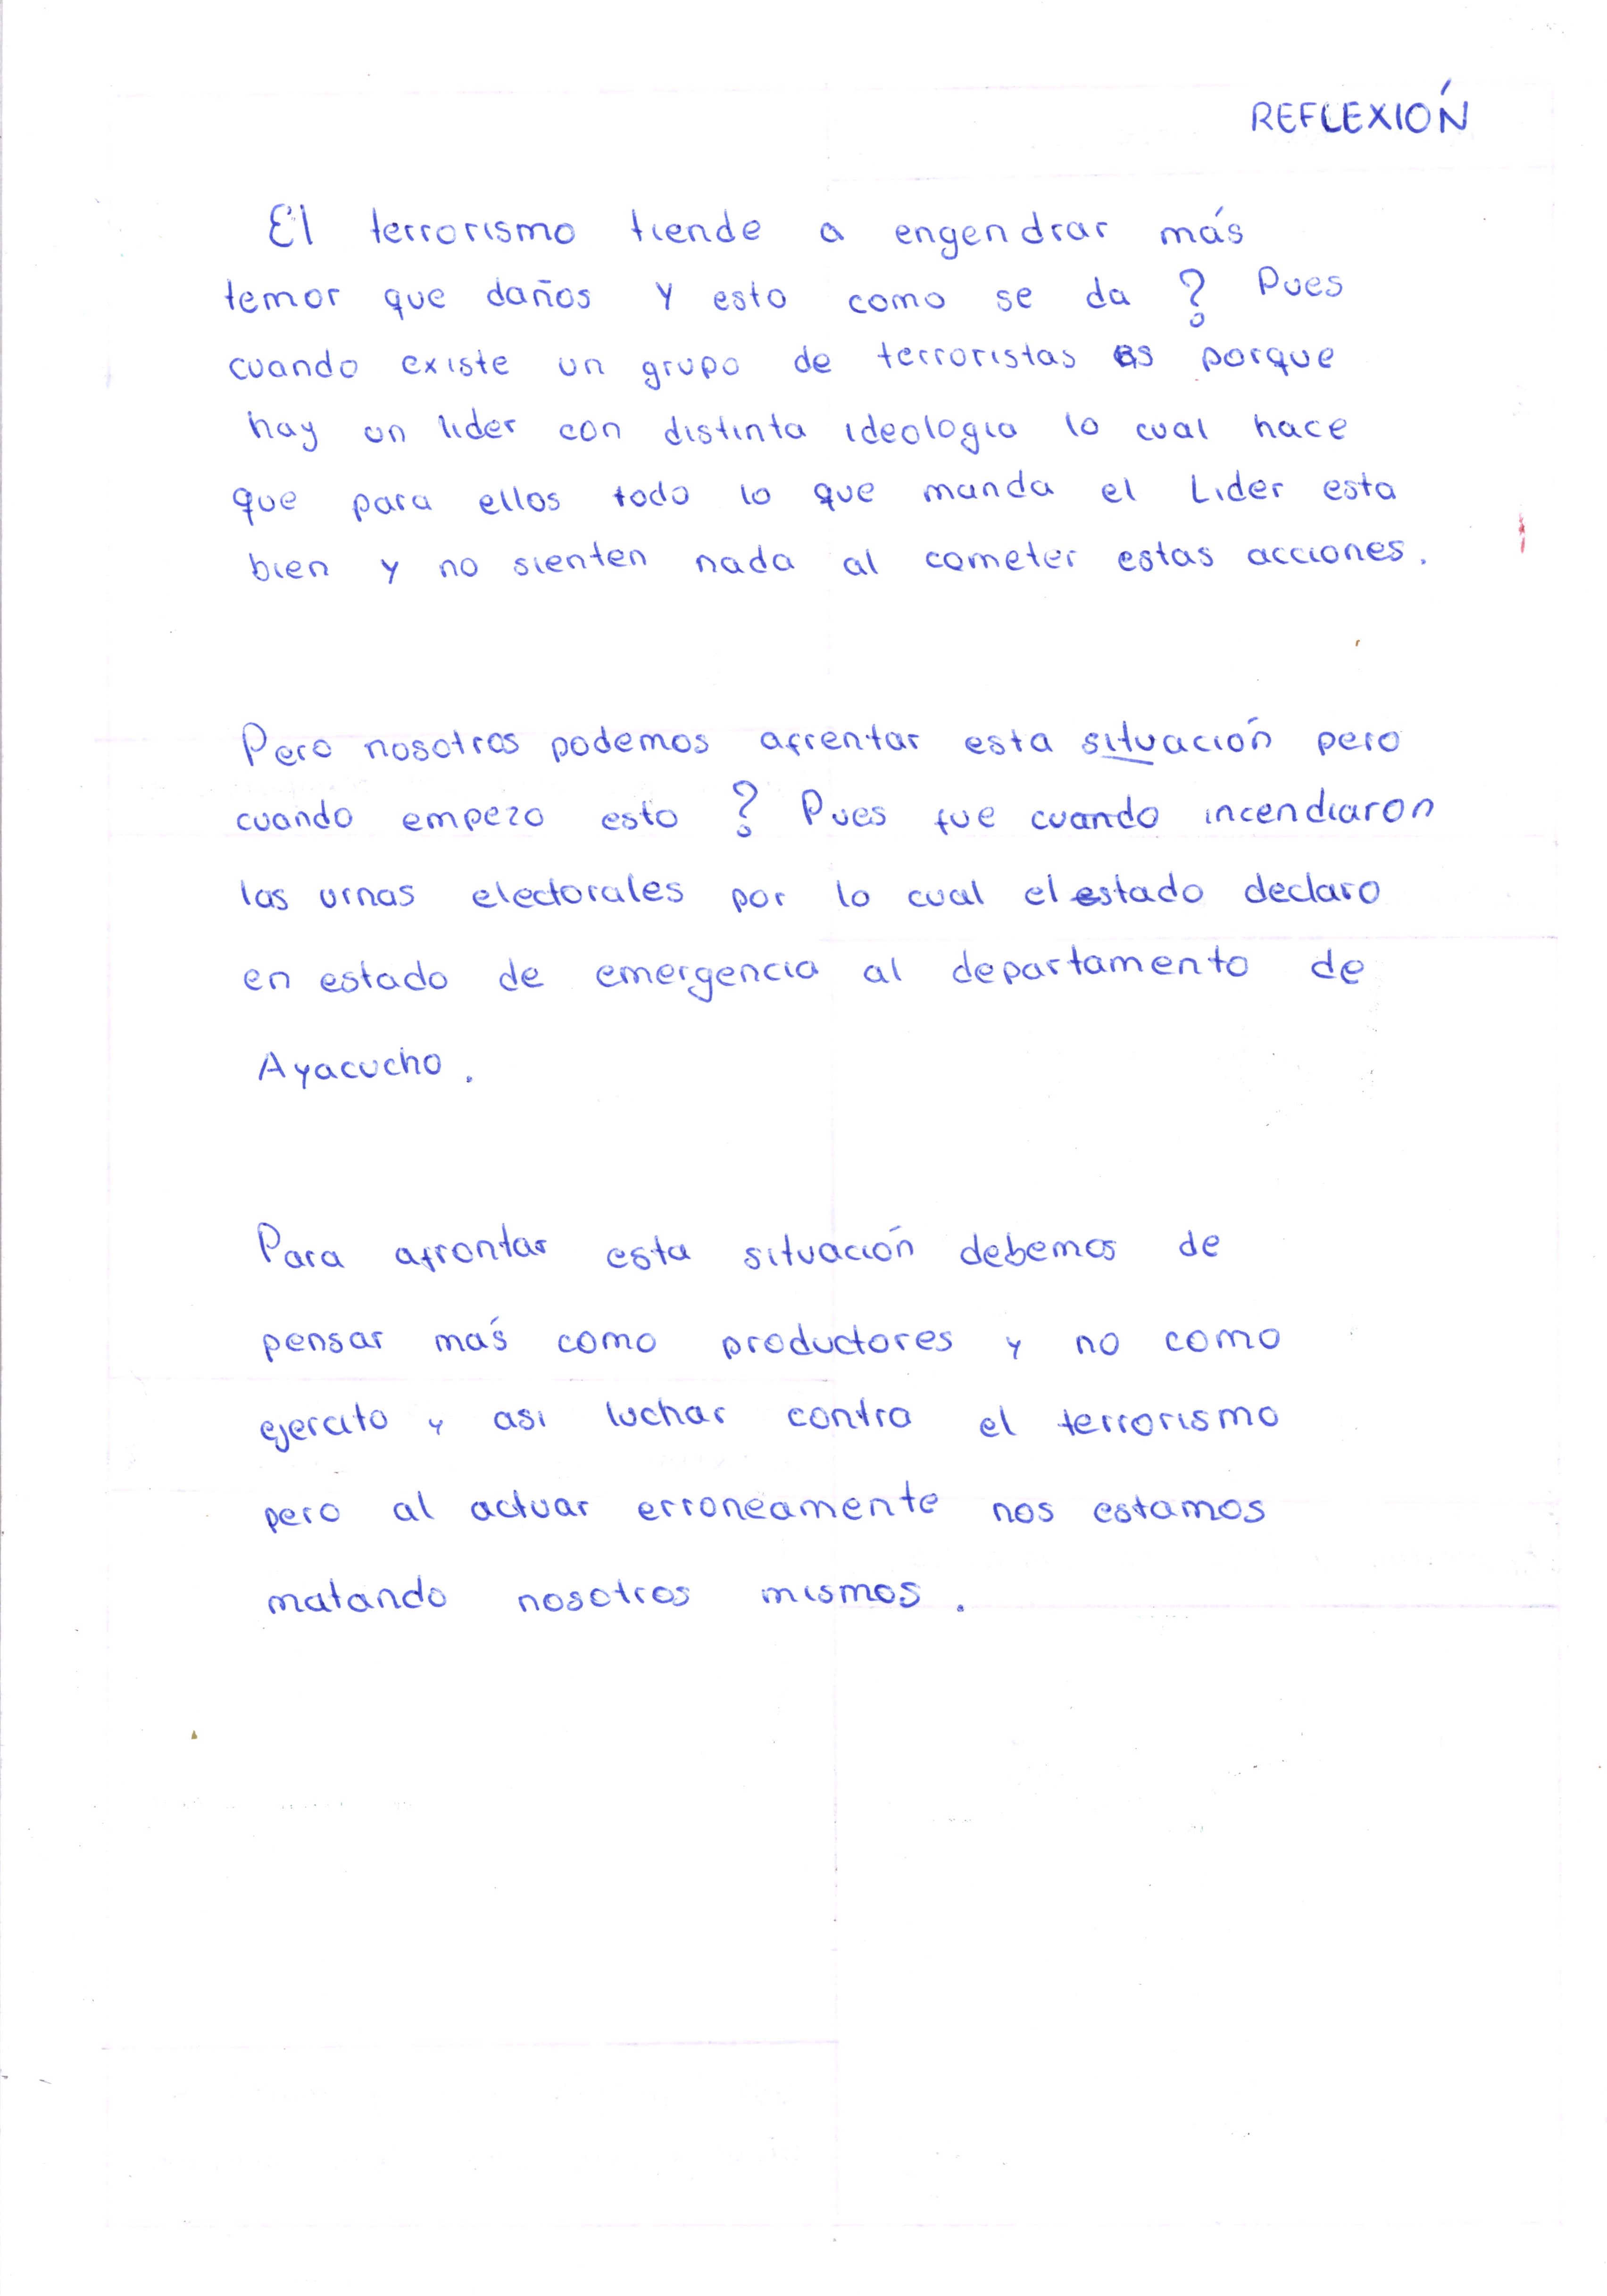 REFLEXIÓN
El terrorismo tiende a engendrar más
temor que daños y esto como se da ? Pues
cuando existe un grupo de terroristas es porque
hay un lider con distinta ideologia lo cual hace
que para ellos todo lo que manda el Lider esta
bien y no sienten nada al cometer estas acciones.
Pero nosotros podemos afrentar esta situación pero
cuando empezo esto ? Pues fue cuando incendiaron
las urnas electorales por lo cual el estado declaro
en estado de emergencia al departamento de
Ayacucho.
Para afrontar esta situación debemos de
pensar más como productores y no como
ejercito y asi luchar contra el terrorismo
pero al actuar erroneamente nos estamos
matando nosotros mismos.